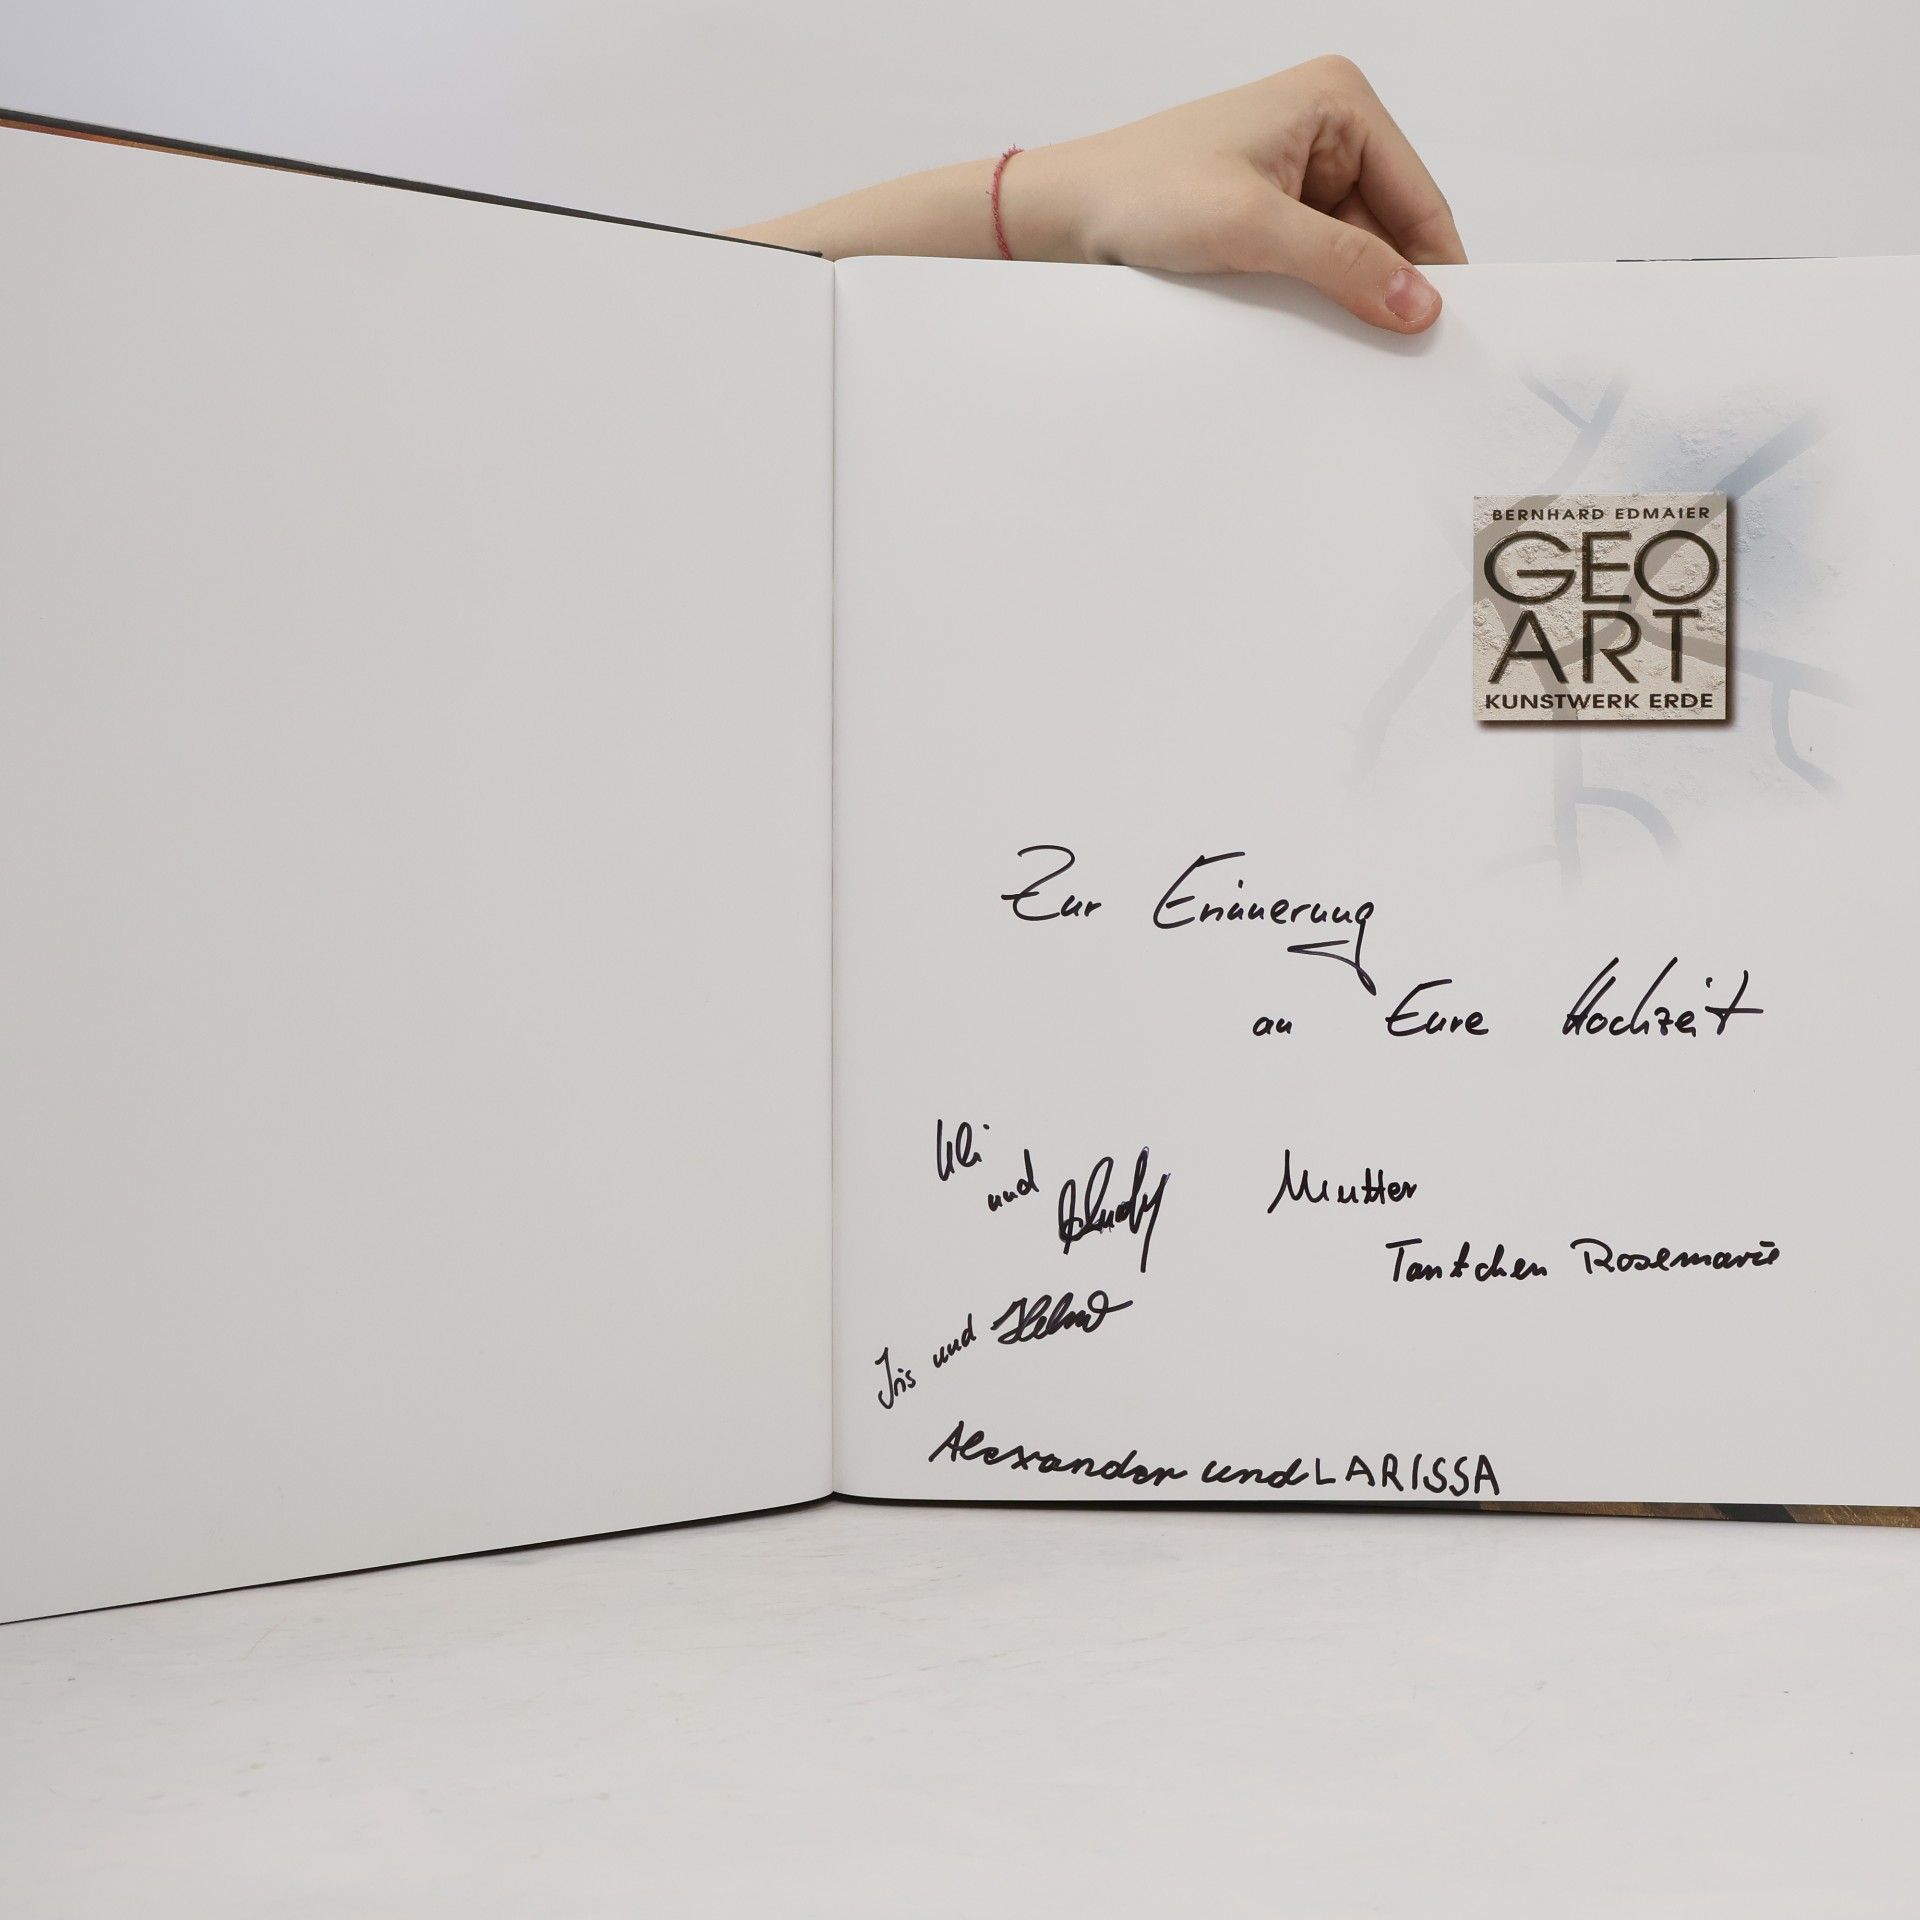 BERNHARD EDMAIER
GEO
ART
KUNSTWERK ERDE
Zur Erinnerung
an Eure Hochzeit
Uli
und
Mutter
Tantchen Rosemarie
Iris und
Alexander und LARISSA